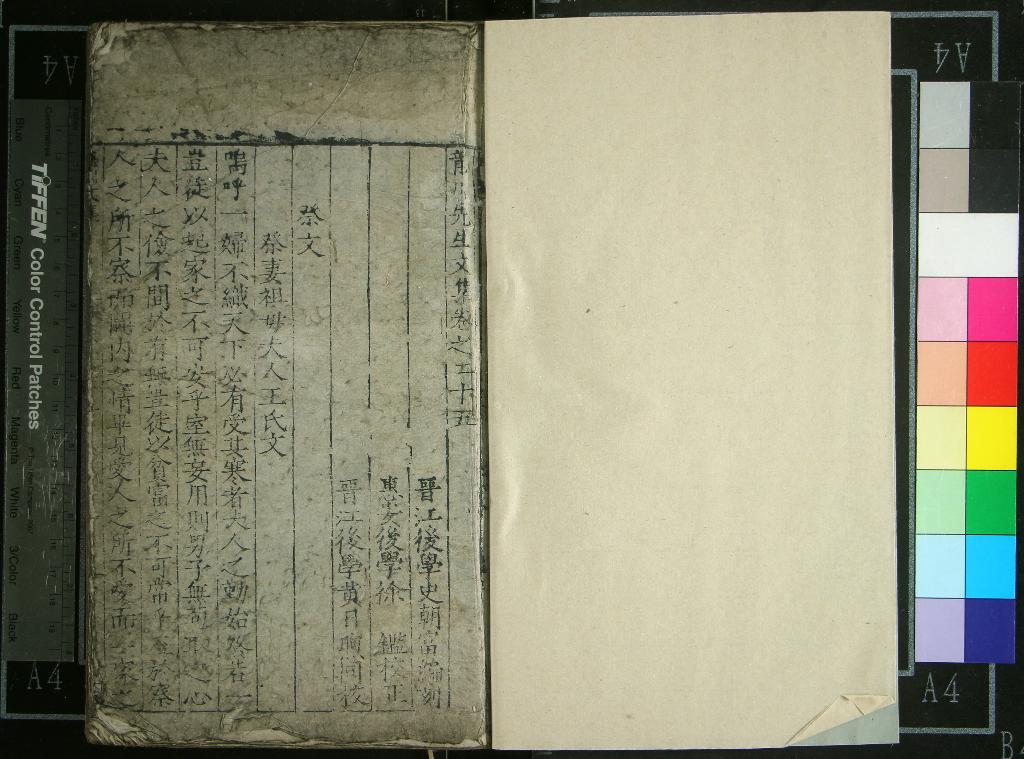 龍川先生文集卷之二十五
晋江後學史朝富編刻
後學徐 鑑校正
晋江後學黄日 同校
祭文
祭妻祖母夫人王氏文
嗚呼一婦不織天下必有受其寒者夫人之勤始終若一
豈徒以起家之不可安乎室無妄用則男子無苟取之心
夫人之儉不間於有無豈徒以貧富之不可常乎至於察
人之所不察而閨内之情畢見愛人之所不愛而 家之
TIFFEN Color Control Patches
Blue
Cyan
Green
Yellow
Red
Magenta
White
3/Color
Black
A4
A4
A4
A4